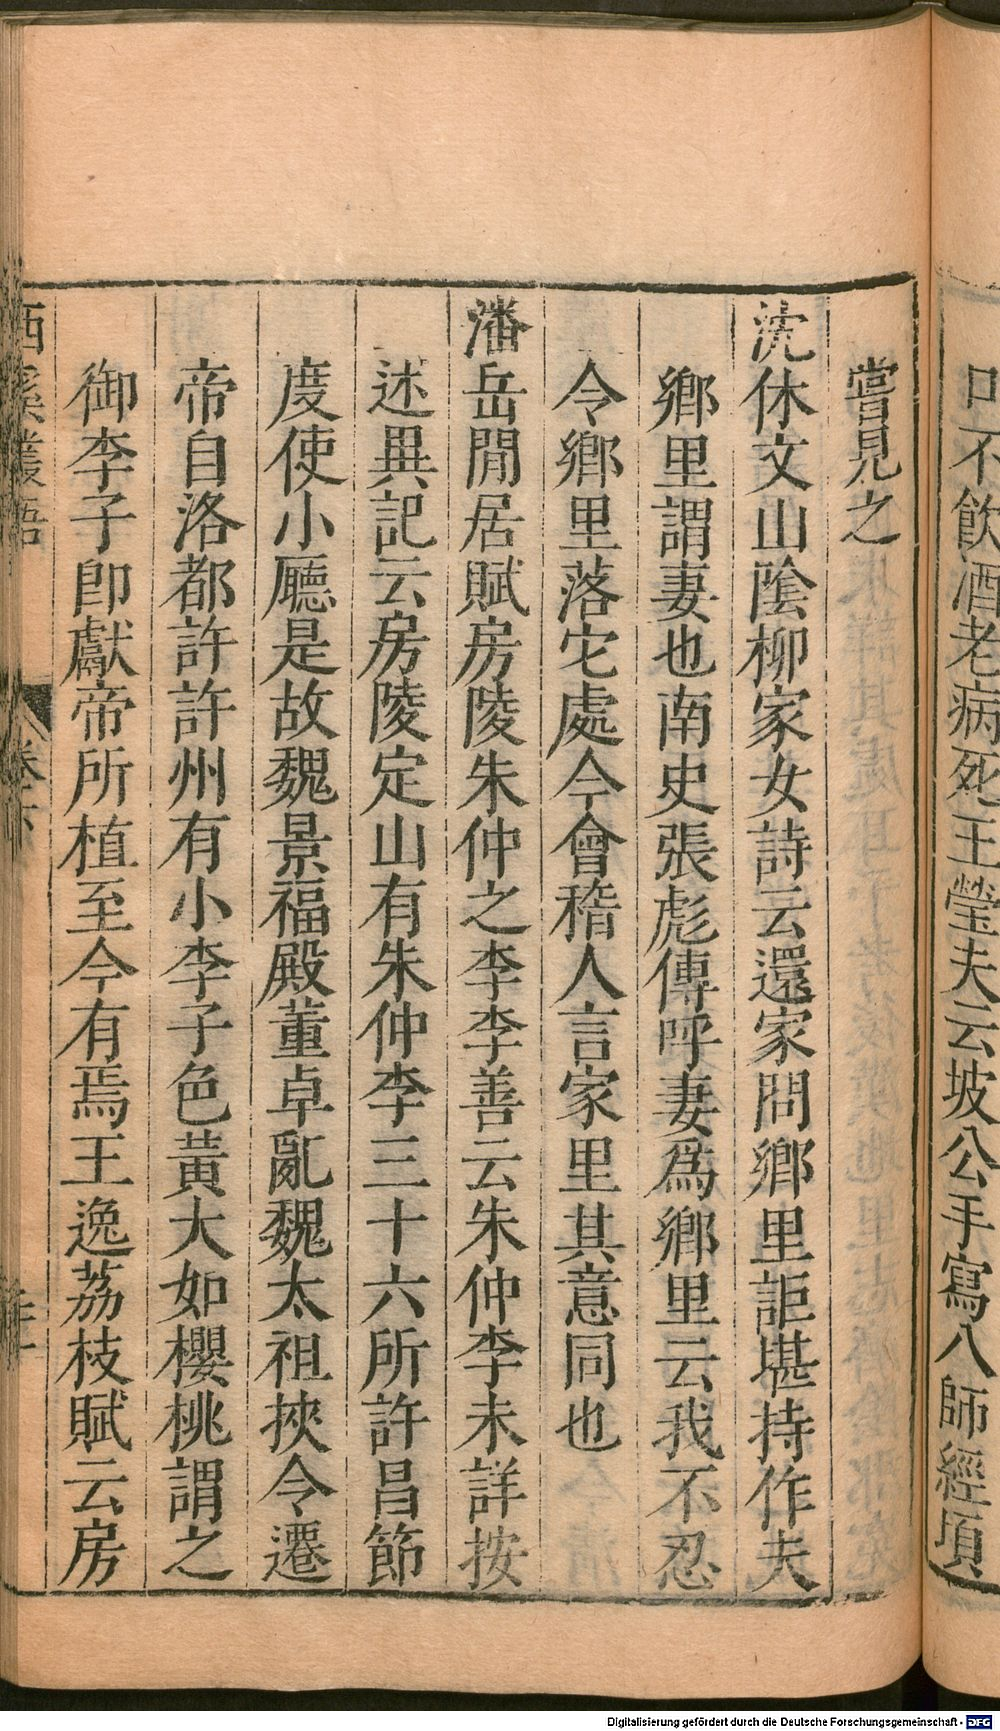 口不飲酒老病死王瑩夫云坡公手寫八師經項
嘗見之
沈休文山陰柳家女詩云還家問鄉里詎堪持作夫
鄉里謂妻也南史張彪傳呼妻爲鄉里云我不忍
令鄉里落它處今會稽人言家里其意同也
潘岳閒居賦房陵朱仲之李李善云朱仲李未詳按
述異記云房陵定山有朱仲李三十六所許昌節
度使小廳是故魏景福殿董卓亂魏太祖挾令遷
帝自洛都許許州有小李子色黃大如櫻桃謂之
御李子卽獻帝所植至今有焉王逸荔枝賦云房
西溪叢語
卷下
Digitalisierung gefördert durch die Deutsche Forschungsgemeinschaft - DFG